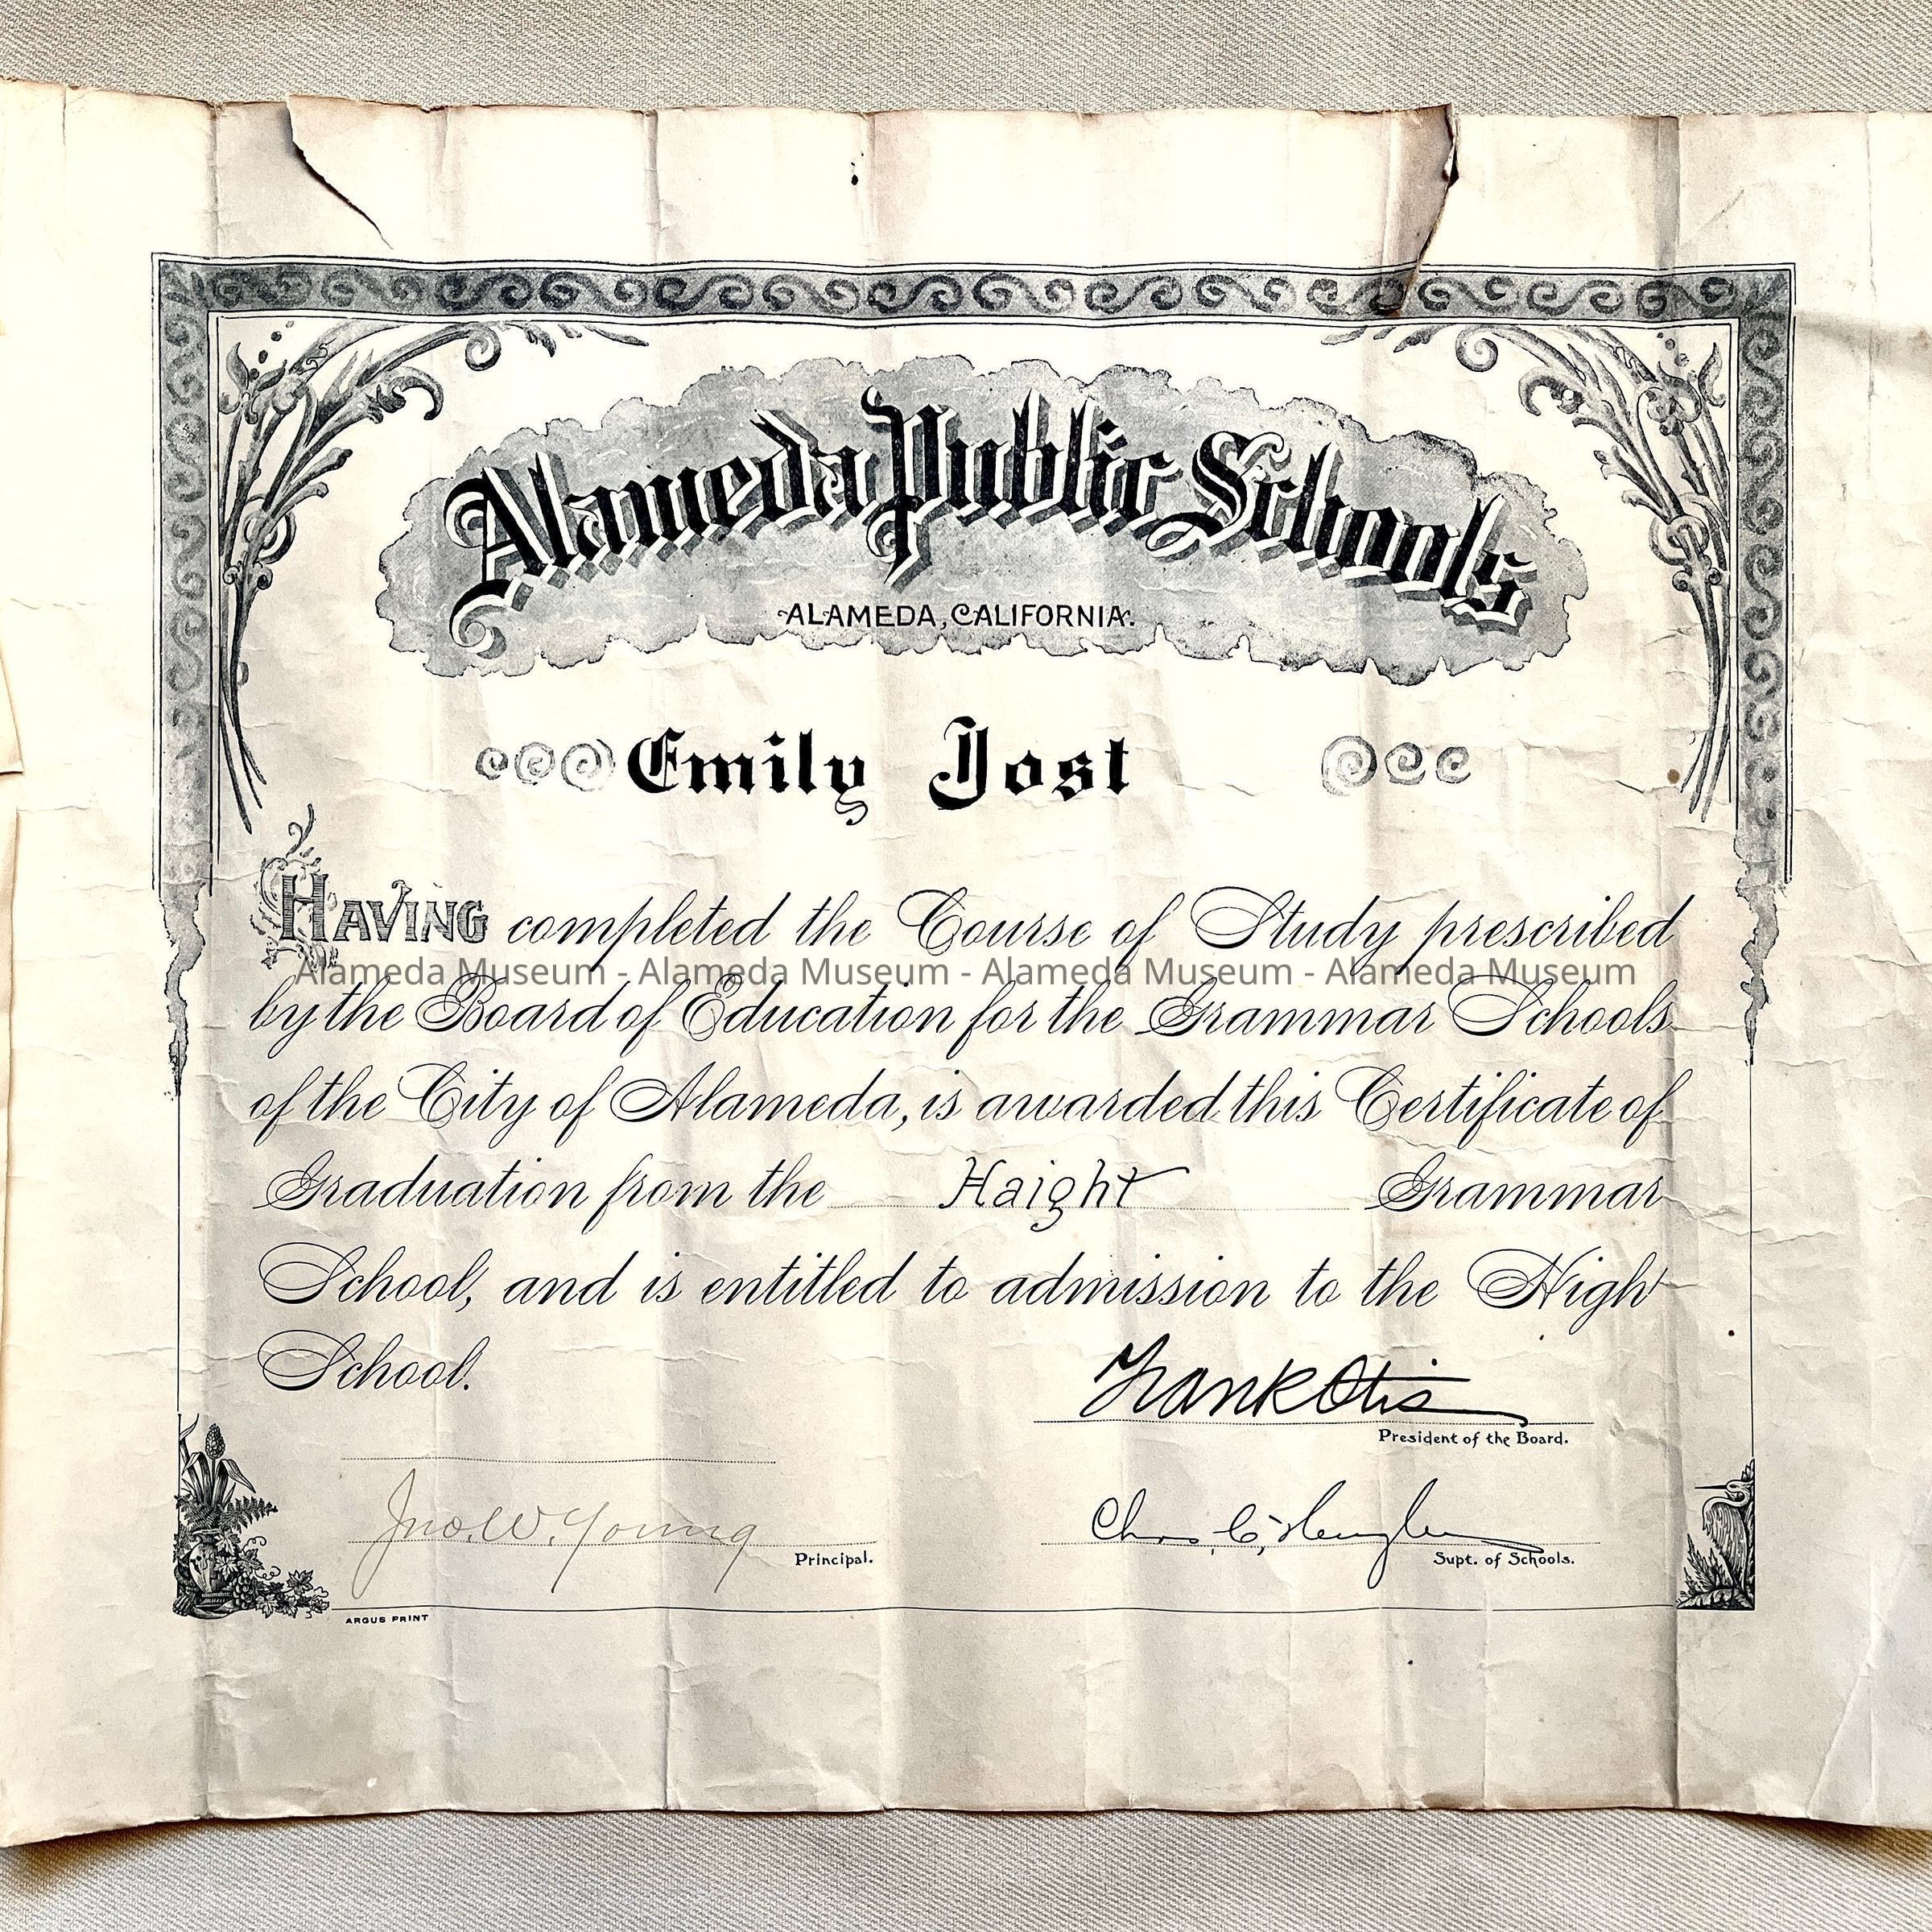 Alameda Public Schools
ALAMEDA, CALIFORNIA.
Emily Jost
HAVING completed the Course of Study prescribed
Alameda Museum - Alameda Museum - Alameda Museum - Alameda Museum
by the Board of Education for the Grammar Schools
of the City of Alameda, is awarded this Certificate of
Graduation from the Haight Grammar
School, and is entitled to admission to the High
School.
Frank Otis
President of the Board.
Jno. W. Young
Principal.
Chas. C. Hughes
Supt. of Schools.
ARGUS PRINT